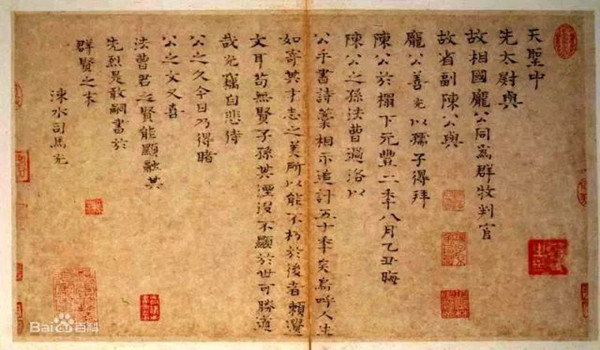 天聖中
先太尉與
故相國龐公同為群牧判官
故省副陳公與
龐公善光以孺子得拜
陳公於榻下元豐二年八月乙丑晦
陳公之孫法曹過洛以
公手書詩藁相示追計五十年矣嗚呼人生
如寄其才志之美所以能不朽於後者賴遺
文耳苟無賢子孫其湮沒不顯於世可勝道
哉光竊自悲侍
公之久今日乃得睹
公之文又喜
法曹君之賢能顯融其
先烈是敢嗣書於
群賢之末
涑水司馬光
Baidu百科